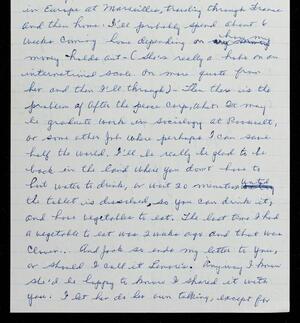 in Europe at Marseilles, traveling through France
and then home. I'll probably spend about 6
weeks coming home depending on how my
money holds out. really a hobo on an
international scale. One more quote from
her and then I'll through) - Then there is the
problem of After the peace corp, what? It may
be graduate work in sociology at Roosevelt,
or some other job where perhaps I can save
half the world. I'll be really be glad to be
back in the land where you don't have to
boil water to drink, or wait 20 minutes until
the tablet is dissolved, so you can drink it,
and have vegetables to eat. The last time I had
a vegetable to eat was 2 weeks ago and that was
And so ends my letter to you,
or should I call it Lenore's. Anyway I know
she'd be happy to know I shared it with
you. I let her do her own talking, except for